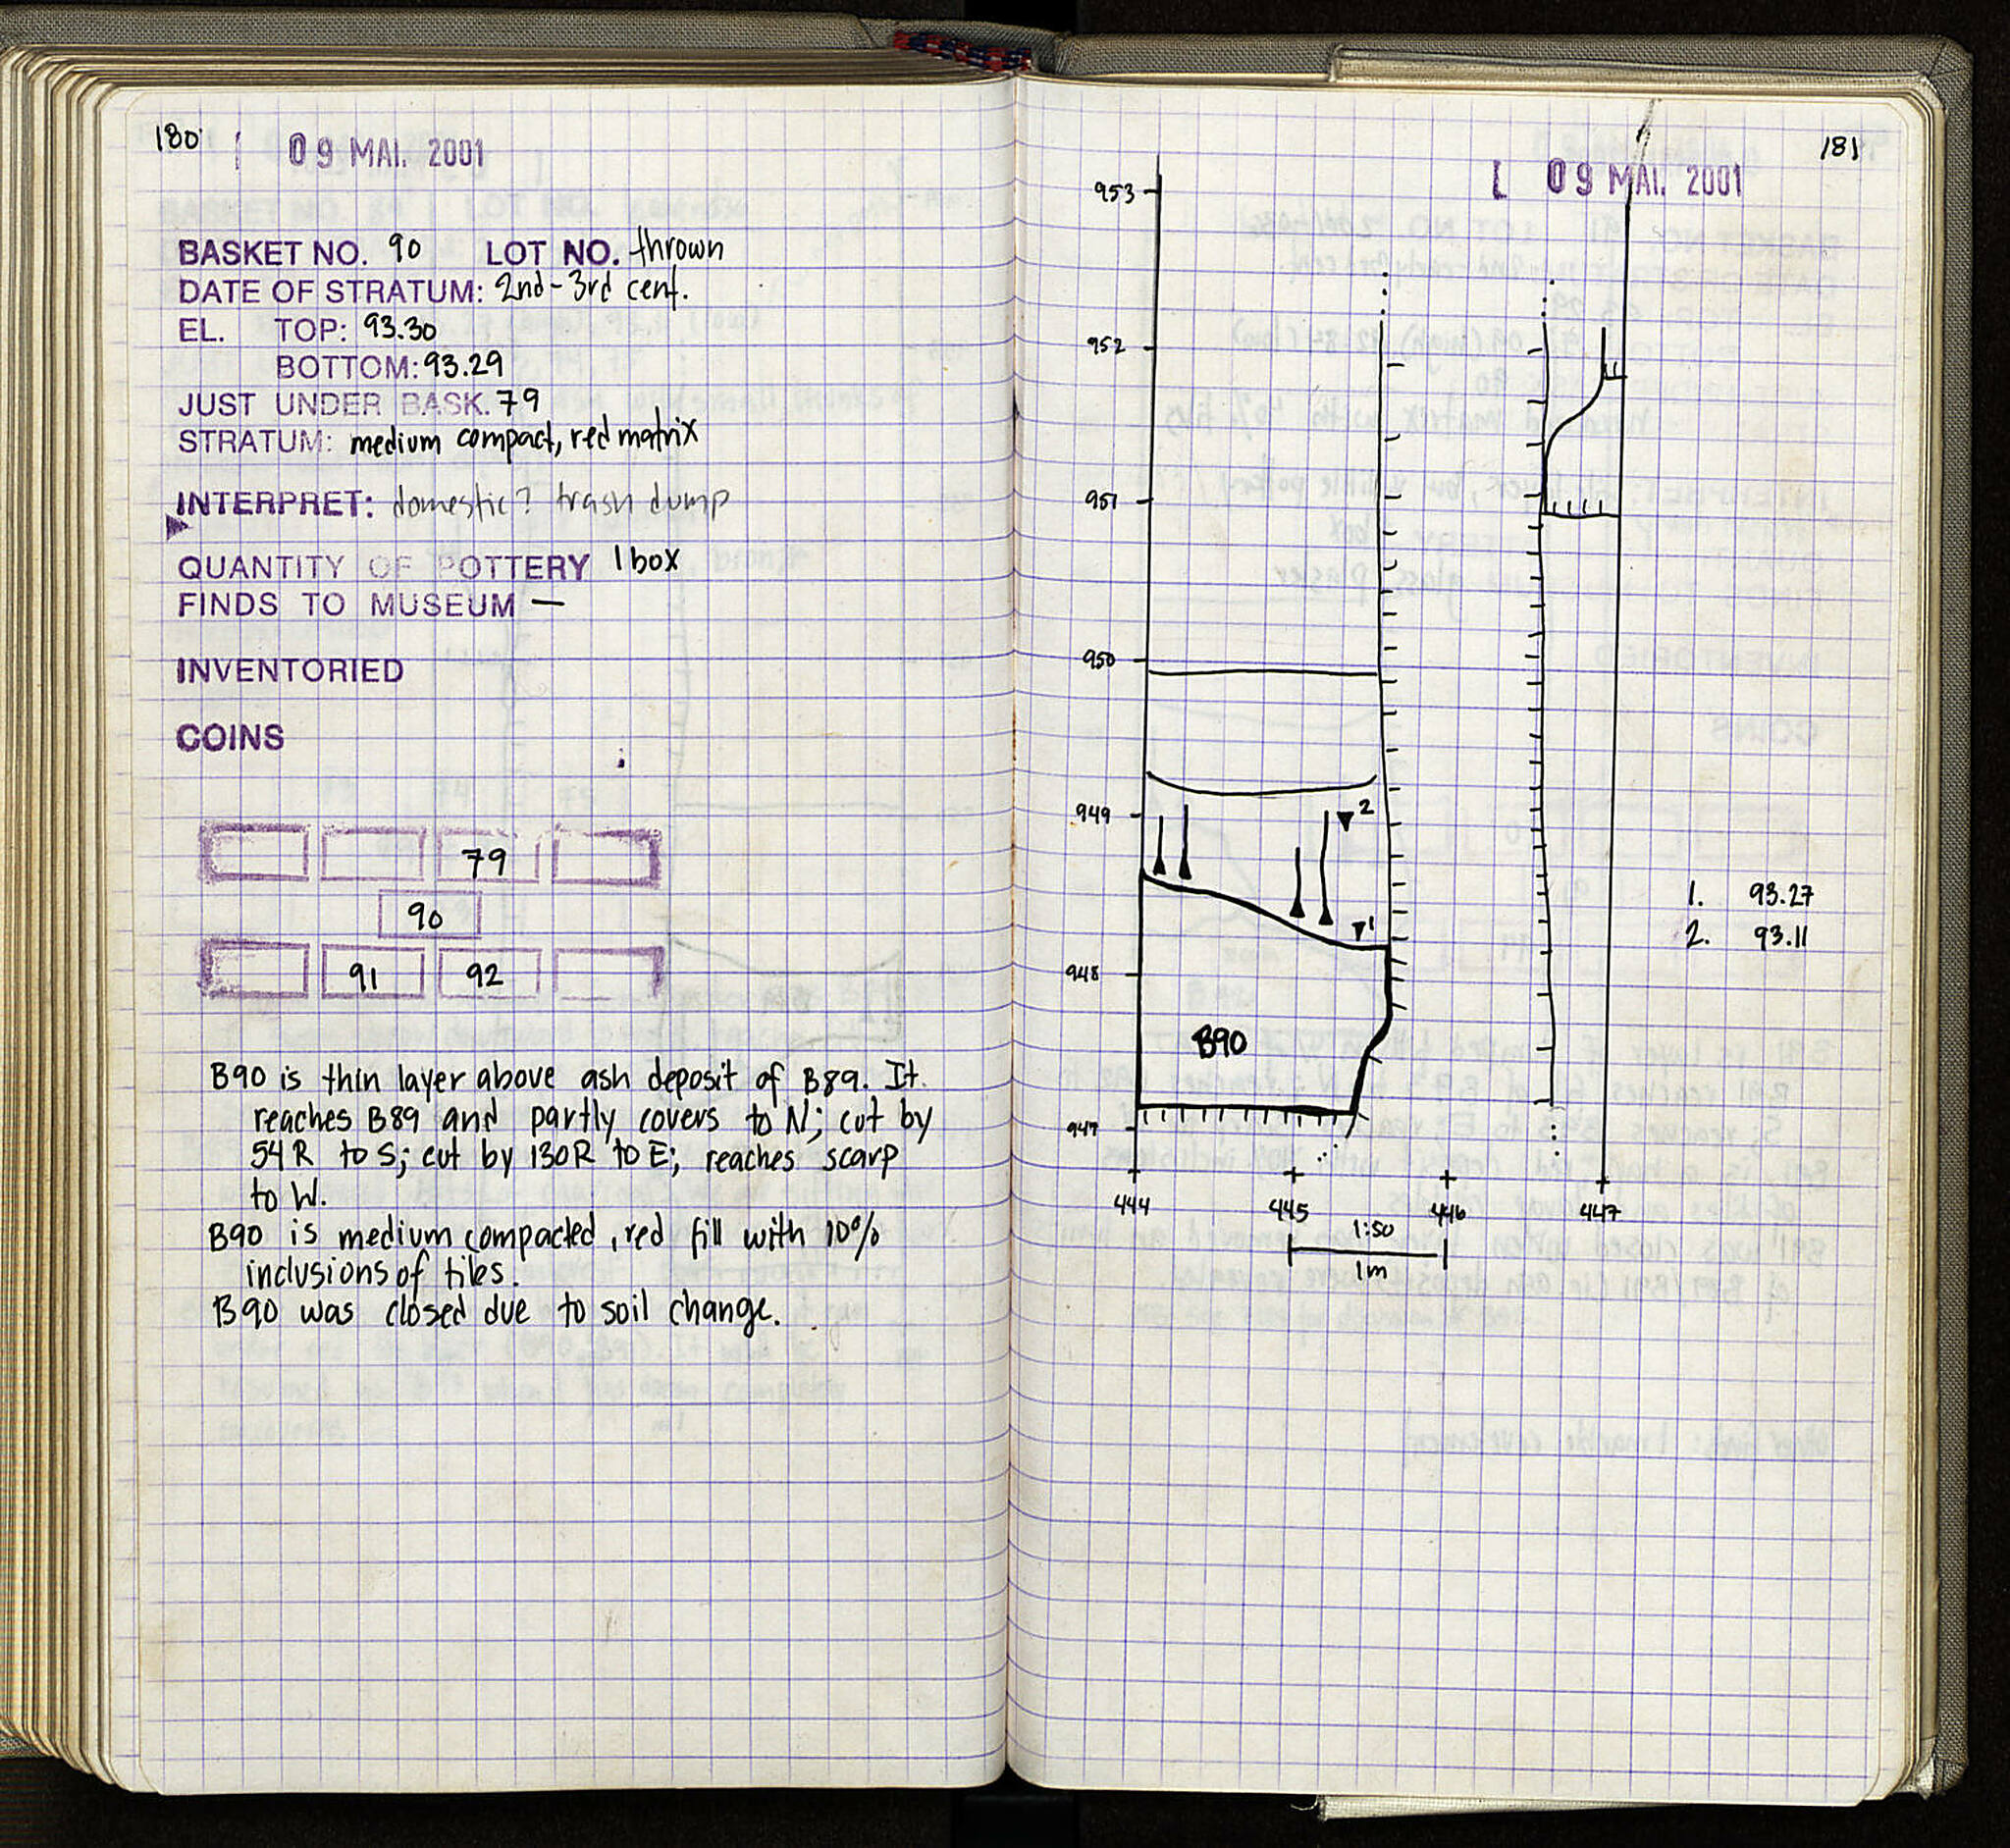 180
09 MAI. 2001
BASKET NO. 90 LOT NO. thrown
DATE OF STRATUM: 2nd-3rd cent.
EL. TOP: 93.30
BOTTOM: 93.29
JUST UNDER BASK. 79
STRATUM: medium compact, red matrix
INTERPRET: domestic? trash dump
QUANTITY OF POTTERY 1 box
FINDS TO MUSEUM —
INVENTORIED
COINS
79
90
91 92
B90 is thin layer above ash deposit of B89. It
reaches B89 and partly covers to N; cut by
54R to S; cut by 130R to E; reaches scarp
to W.
B90 is medium compacted, red fill with 10%
inclusions of tiles.
B90 was closed due to soil change.
181
09 MAI. 2001
953
952
951
950
949
2
1
948
B90
947
444 445 446 447
1:50
1m
1. 93.27
2. 93.11